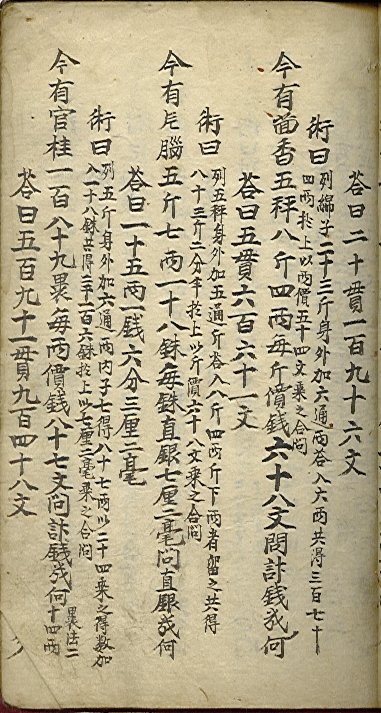 荅曰二十貫一百九十六文
術曰列綿子二十三斤身外加六通兩荅入六兩共得三百七十
四兩於上以兩價五十四文乘之合問
今有茴香五秤八斤四兩每斤價錢六十八文問計錢㡬何
荅曰五貫六百六十一文
術曰列五秤身外加五通斤荅入八斤四兩斤下兩者留之共得
八十三斤二分半於上以斤價六十八文乘之合問
今有片腦五斤七兩一十八銖每銖直銀七厘二毫問直銀㡬何
荅曰一十五兩一錢六分三厘二毫
術曰列五斤身外加六通兩內子七得八十七兩以二十四乘之得數加
入一十八銖共得二千一百六銖於上以七厘二毫乘之合問
今有官桂一百八十九裹每兩價錢八十七文問計錢㡬何裹法二
十四兩
荅曰五百九十一貫九百四十八文